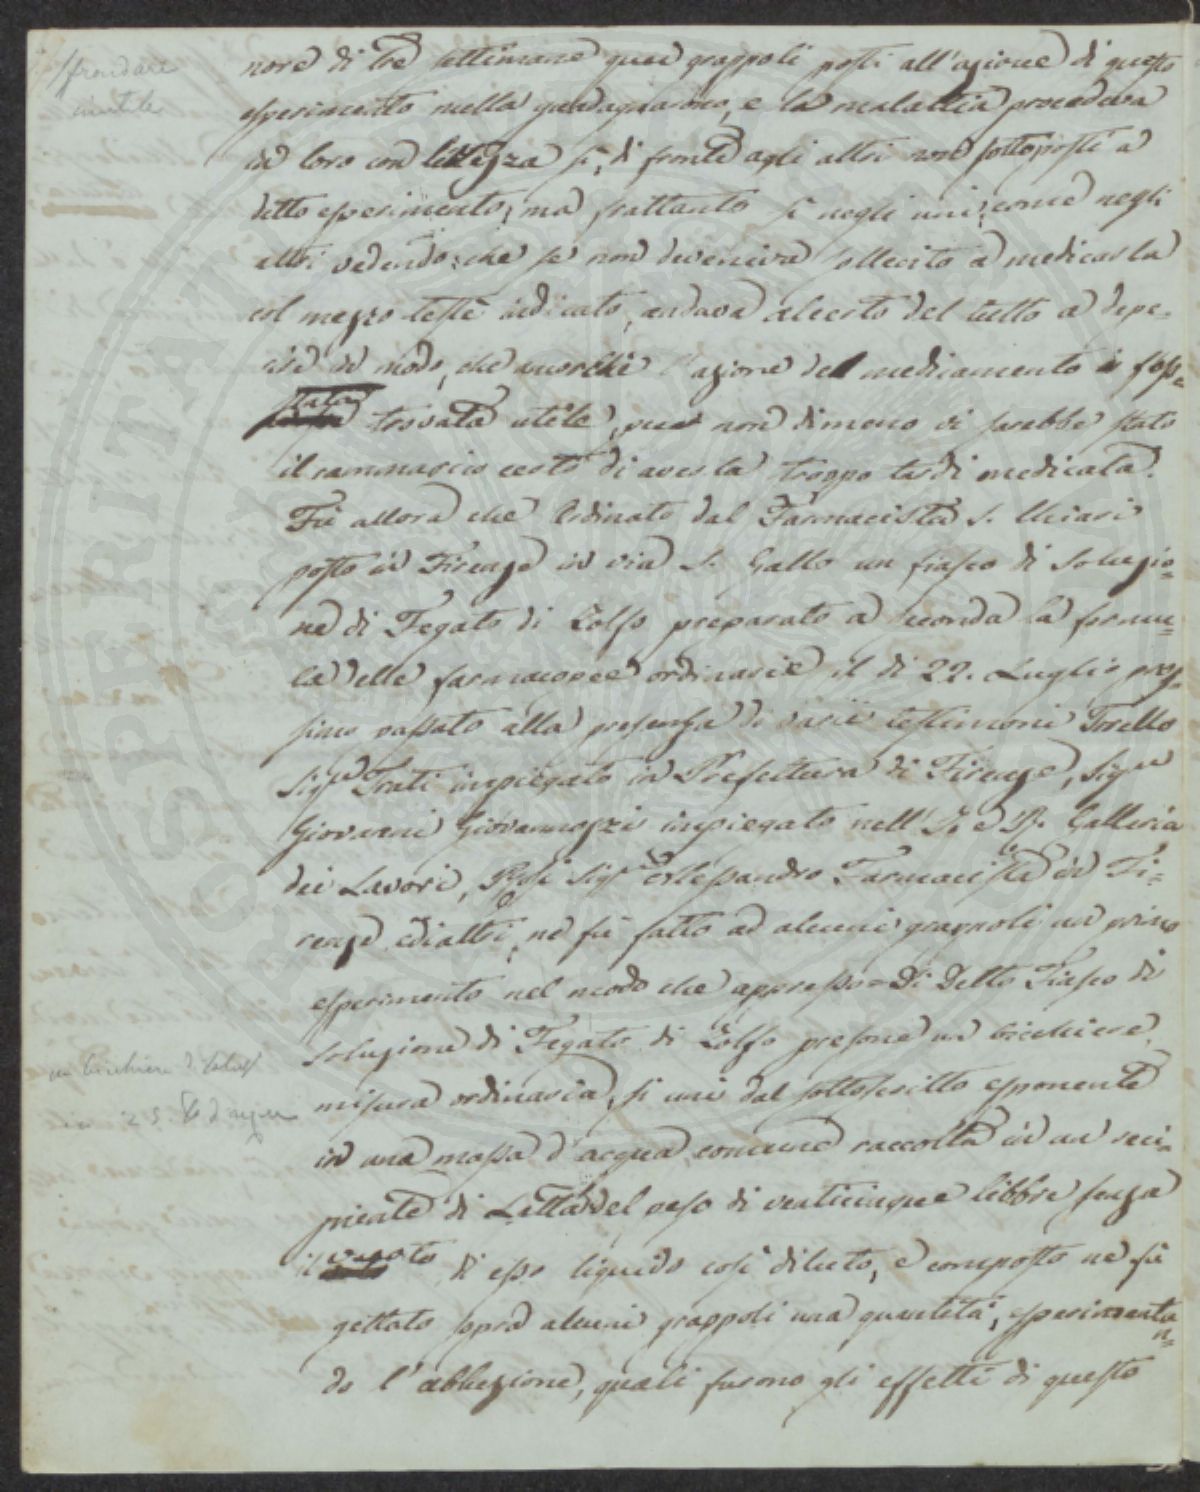 sfrondare
inutile
nore di tre settimane quei grappoli posti all'azione di questo
esperimento nulla guadagnarono, e la malattia procedeva
in loro con lentezza sì, di fronte agli altri non sottoposti a
detto esperimento, ma frattanto sì negli uni, come negli
altri vedendo, che se non deveniva sollecito a medicarla
col mezzo testè indicato, andava al certo del tutto a depe-
rire in modo, che ancorchè l'azione del medicamento si foss-
stata trovata utile, pur non dimeno vi sarebbe stato
il rammarico certo di averla troppo tardi medicata.
Fù allora che ordinato dal Farmacista S. Chiari
posto in Firenze in via S. Gallo un fiasco di Soluzio-
ne di Fegato di Zolfo preparato a seconda la formu-
la delle farmacopee ordinarie il dì 22. Luglio pros-
simo passato alla presenza di varii testimoni Torello
Sig.r Frati impiegato in Prefettura di Firenze, Sig.r
Giovanni Giovannozzi impiegato nell'I. e R. Galleria
dei Lavori, Sig.r Alessandro Farmacista in Fi-
renze ed altri, ne fù fatto ad alcuni grappoli un primo
esperimento nel modo che appresso = Di detto Fiasco di
Soluzione di Fegato di Zolfo presone un bicchiere,
un bicchiere di
misura ordinaria, si unì dal sottoscritto esponente
in 25. ℔ d'acqua
in una massa d'acqua comune raccolta in un reci-
piente di Latta del peso di venticinque libbre senza
il vuoto di esso liquido così diluto, e composto ne fù
gettato sopra alcuni grappoli una quantità, esperimenta
n-
do l'abluzione, quali furono gli effetti di questo